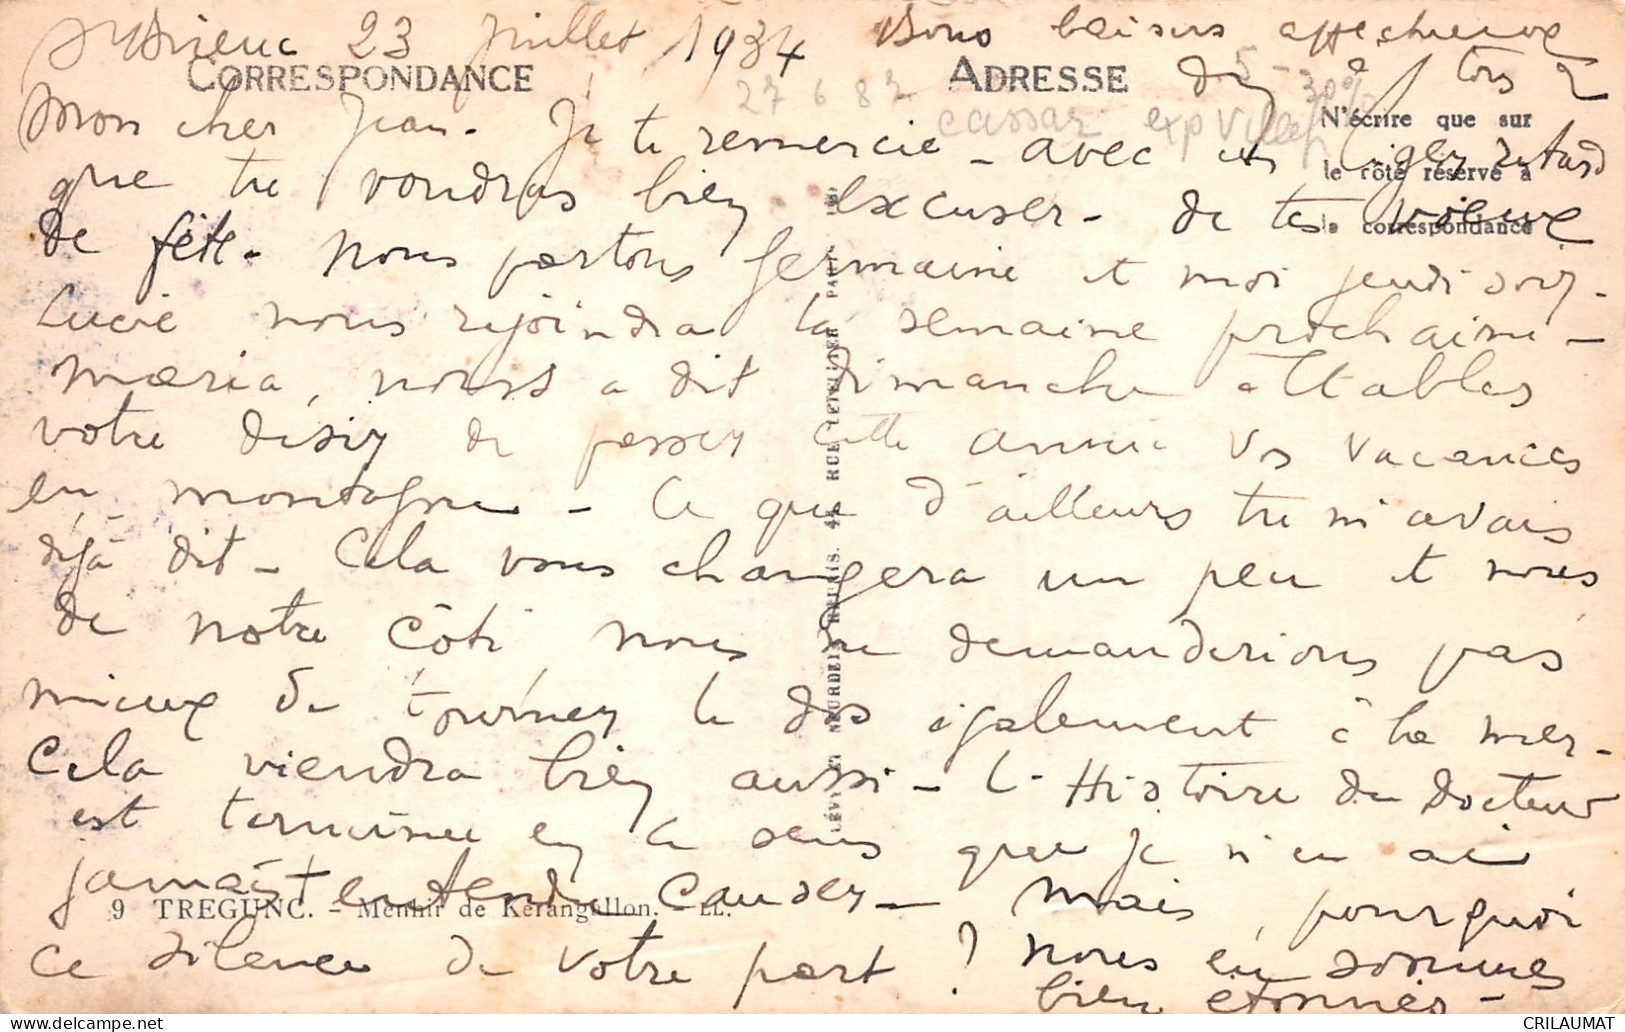 St Brieuc 23 Juillet 1934
Bons baisers affectueux
de à tous 2
CORRESPONDANCE
ADRESSE
N'écrire que sur
le côté réservé à
la correspondance
27 6 87
5 - 30%
cassar exp
Mon cher Jean. Je te remercie - avec un léger retard
que tu voudras bien excuser - de tes voeux
de fête. Nous partons Germaine et moi jeudi soir.
Lucie nous rejoindra la semaine prochaine -
Maria, nous a dit dimanche Etables
votre désir de passer cette année vos vacances
en montagne - Ce que d'ailleurs tu m'avais
déjà dit - Cela vous changera un peu et nous
de notre côté nous ne demanderions pas
mieux de tourner le dos également à la mer -
Cela viendra bien aussi - L'Histoire du docteur
est terminée en ce sens que je n'en ai
jamais entendu causer - Mais pourquoi
ce silence de votre part ? nous en sommes
bien étonnés -
9 TREGUNC. - Menhir de Kérangallon. - LL.
LÉVY ET NEURDEIN RÉUNIS. 44, RUE LETELLIER PARIS